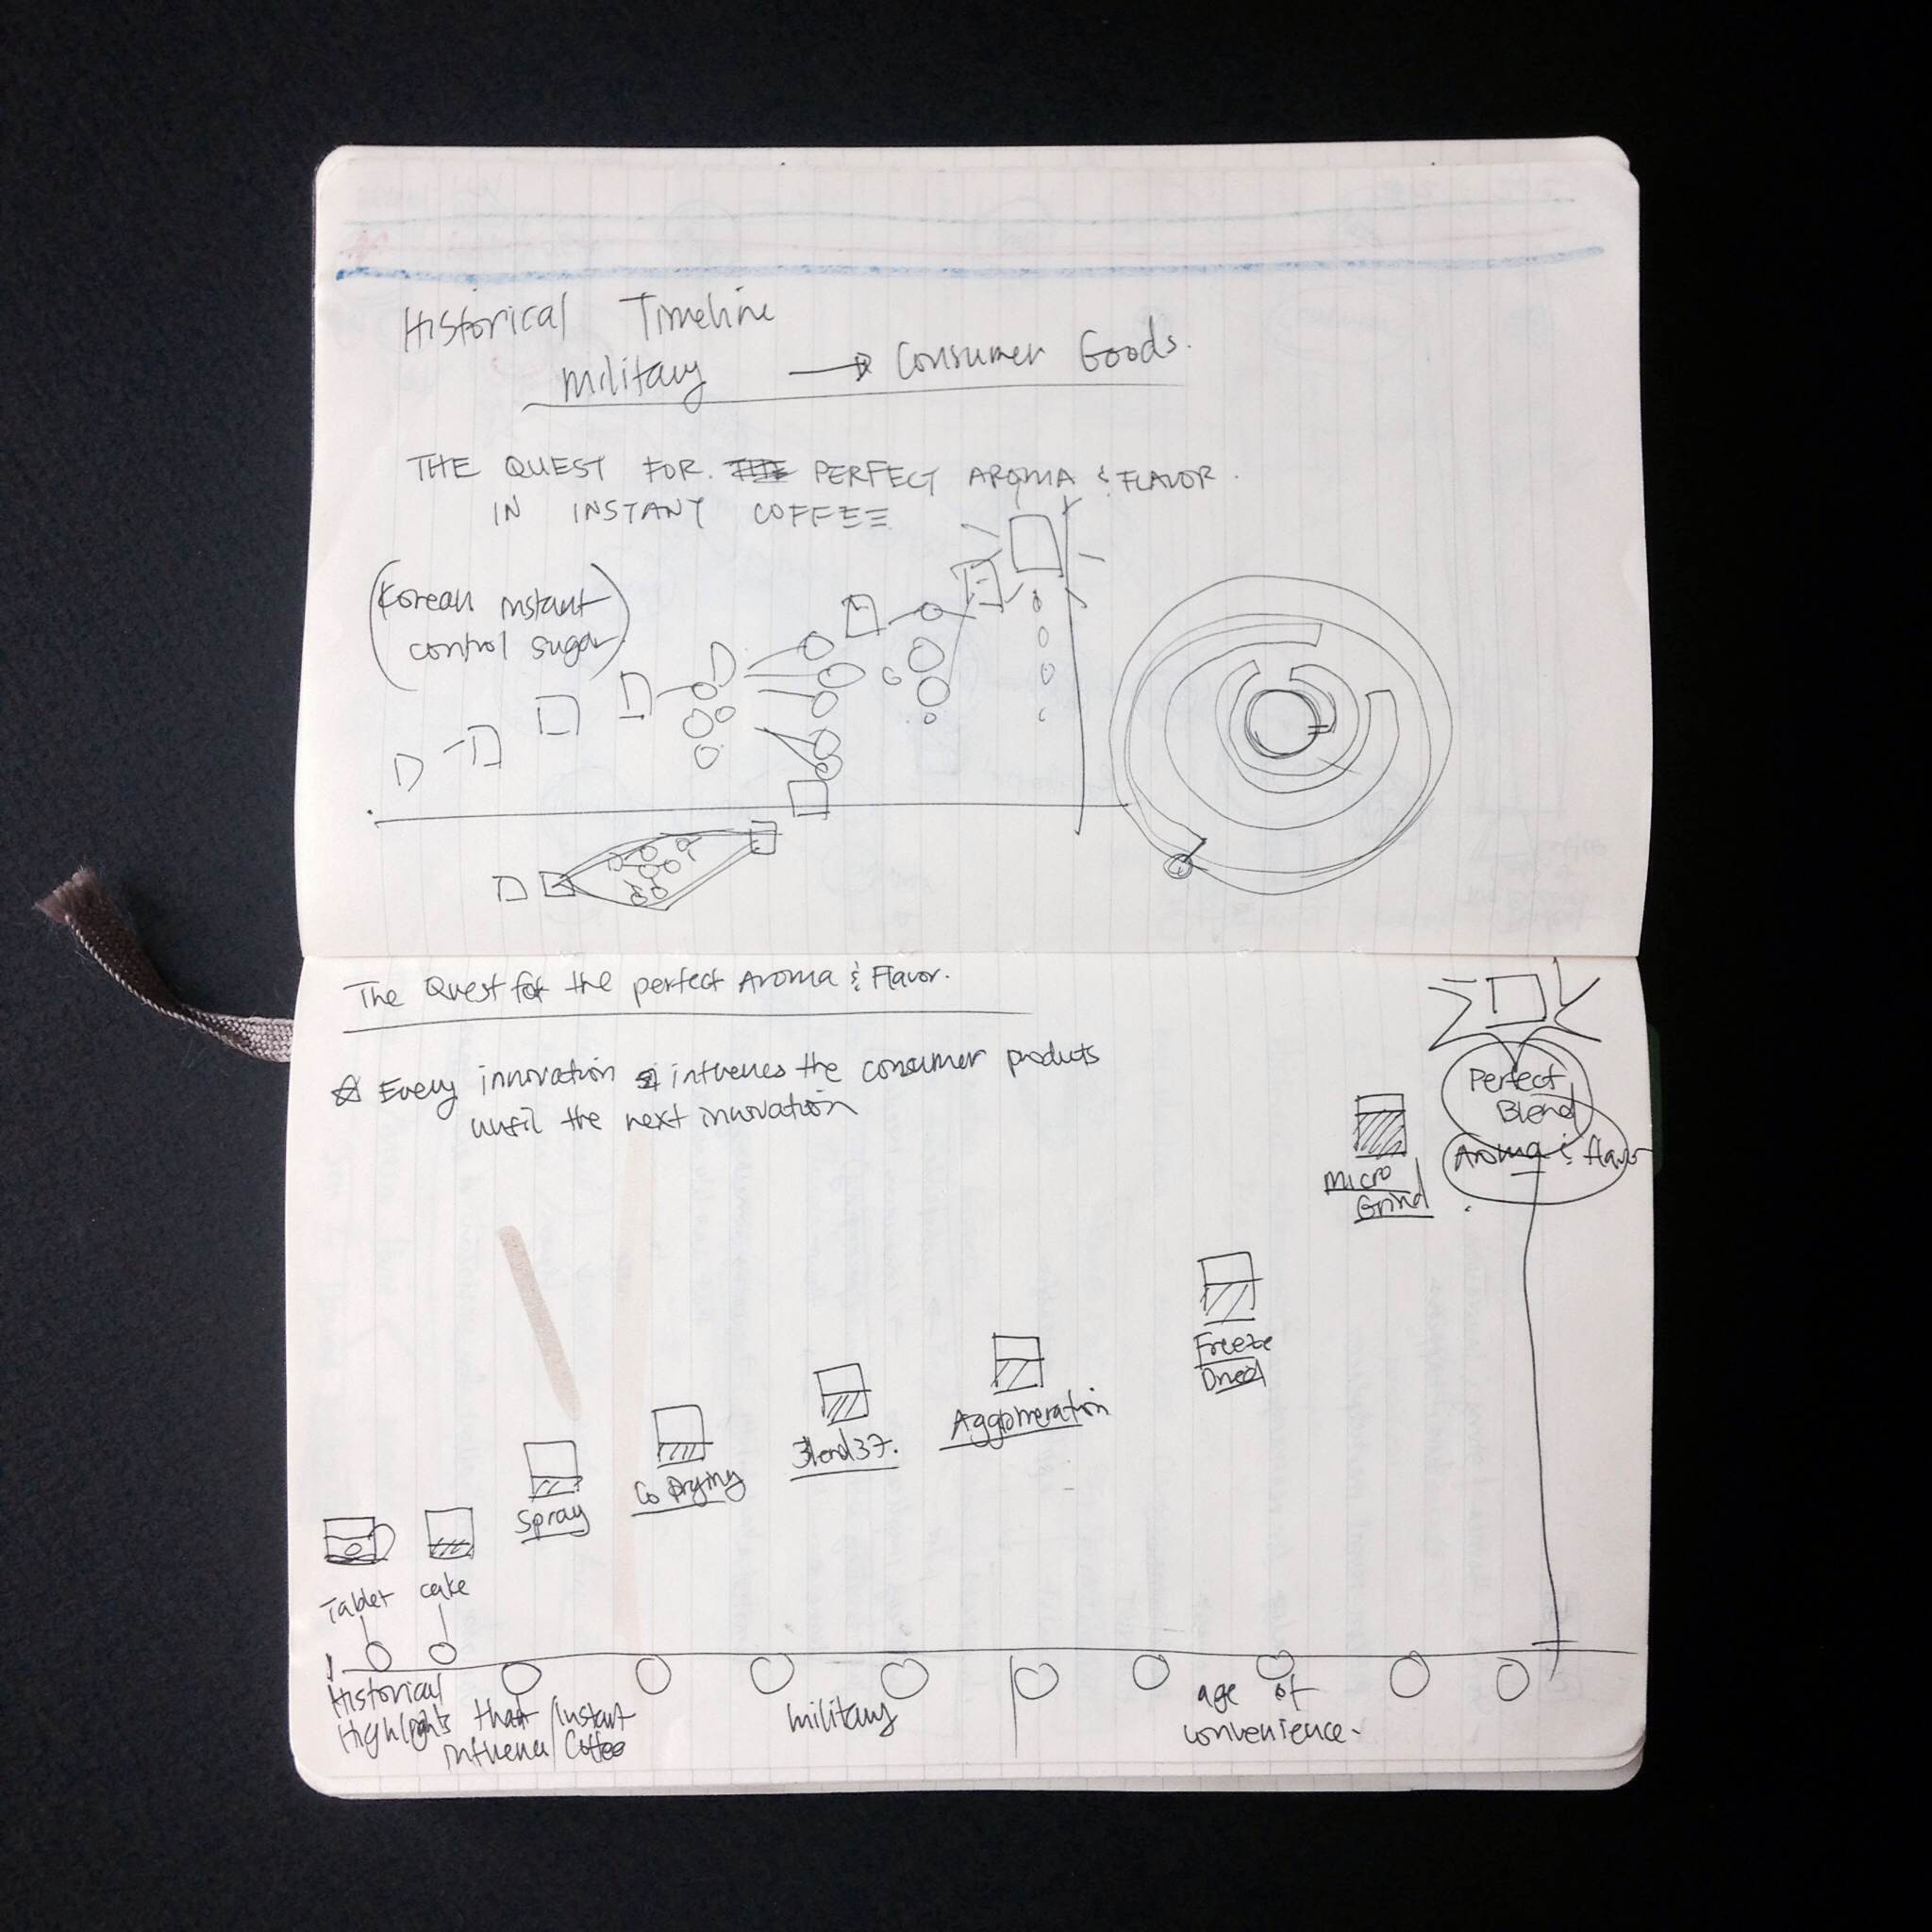 Historical Timeline
military → Consumer Goods.
THE QUEST FOR THE PERFECT AROMA & FLAVOR.
IN INSTANT COFFEE
(Korean instant
control sugar)
The Quest for the perfect Aroma & Flavor.
☆ Every innovation influences the consumer products
until the next innovation
Perfect
Blend
Aroma & flavor
Micro
Grind
Freeze
Dried
Agglomeration
Blend 37.
Co Drying
Spray
cake
Tablet
Historical
Highlights that influence Instant Coffee
military
age of
convenience